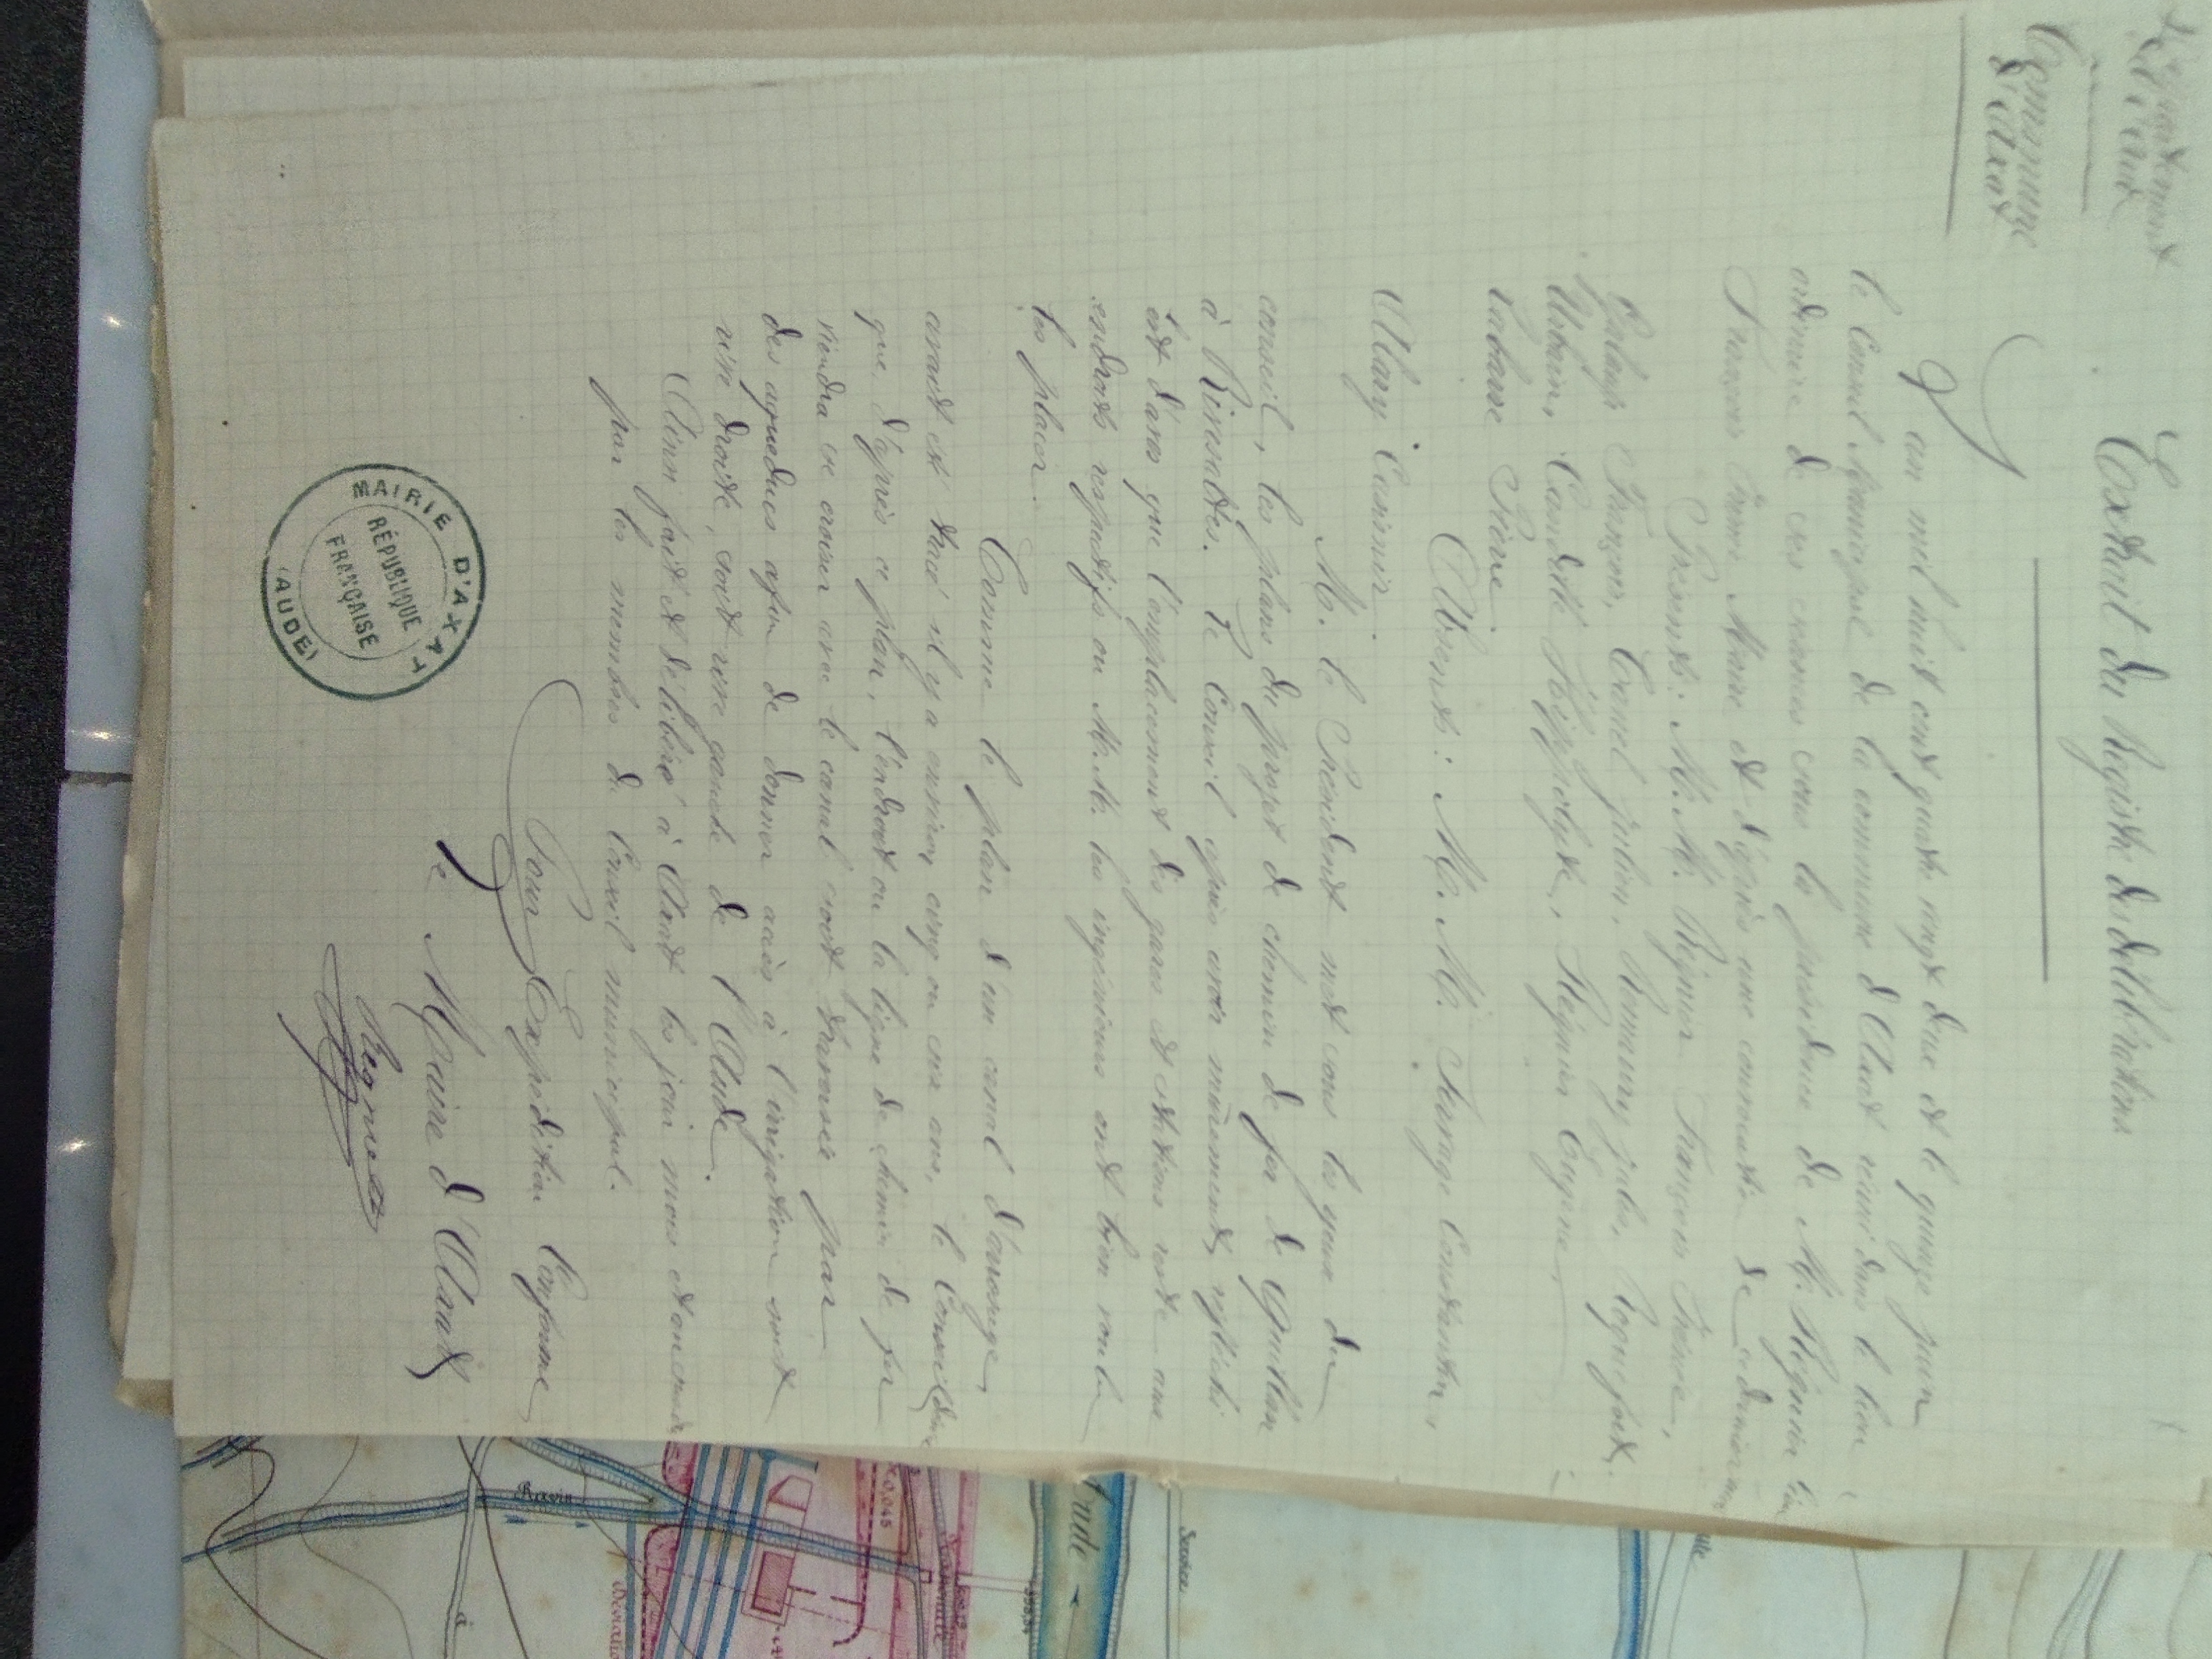 Département
de l'Aude
Commune
d'Axat
Extrait du Registre des délibérations
L'an mil huit cent quatre vingt deux et le quinze juin
le Conseil Municipal de la commune d'Axat réuni dans le lieu
ordinaire de ses séances sous la présidence de M. Régnier
François Irénée Maire et d'après une convocation de ce dernier
Présents: M.M. Régnier François Irénée,
Galaup François, Canel Julien, Romaury Jules, Roquefort
Urbain, Candille Hippolyte, Régnier Eugène
Labarre Pierre.
Absents: M. M. Servage Constantin,
Alary Casimir.
M. le Président met sous les yeux du
conseil, les plans du projet de chemin de fer de Quillan
à Rivesaltes. Le Conseil après avoir mûrement réfléchi
est d'avis que l'emplacement des gares et stations reste aux
endroits respectifs ou M.M. les ingénieurs ont bien voulu
les placer.
Comme le plan d'un canal d'arrosage
avait été tracé il y a environ cinq ou six ans, le Conseil désire
que, d'après ce plan, l'endroit ou la ligne de chemin de fer
viendra se croiser avec le canal soit traversée par
des aqueducs afin de donner accès à l'irrigation soit
rive droite, soit rive gauche de l'Aude.
Ainsi fait et délibéré à Axat les jour mois et an
par les membres du Conseil municipal.
Pour Expédition Conforme
Le Maire d'Axat
Regnier
MAIRIE D'AXAT
RÉPUBLIQUE
FRANÇAISE
(AUDE)
Service
Aude
0,045
Ravin
à